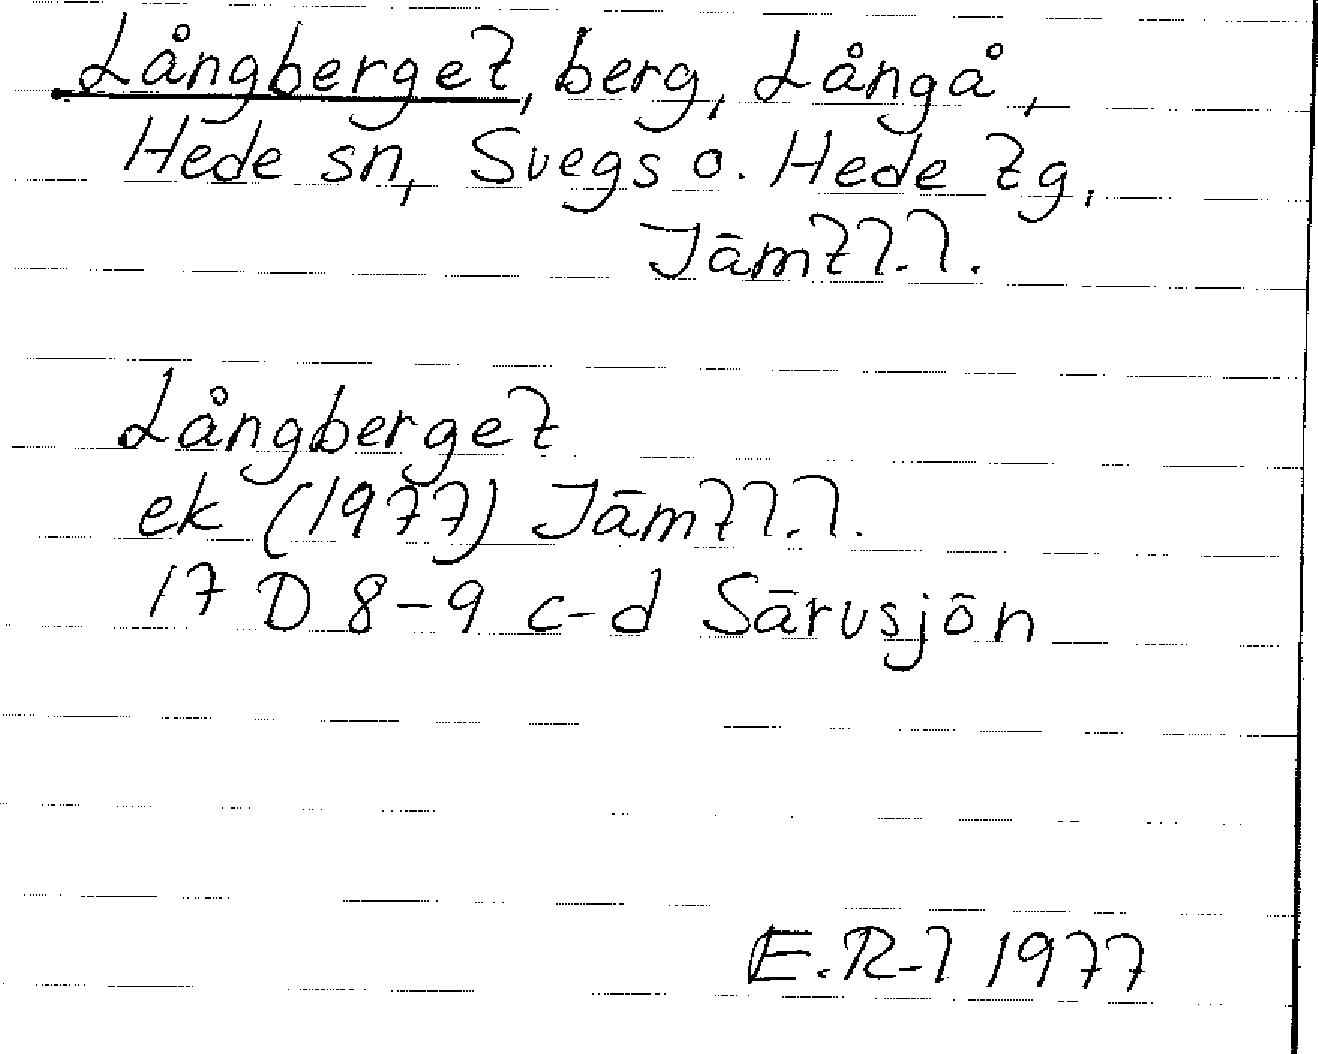 Långberget, berg, Långå,
Hede sn, Svegs o. Hede tg,
Jämtl.l.
Långberget
ek (1977) Jämtl.l.
17 D 8-9 c-d Särvsjön
E.R-l 1977